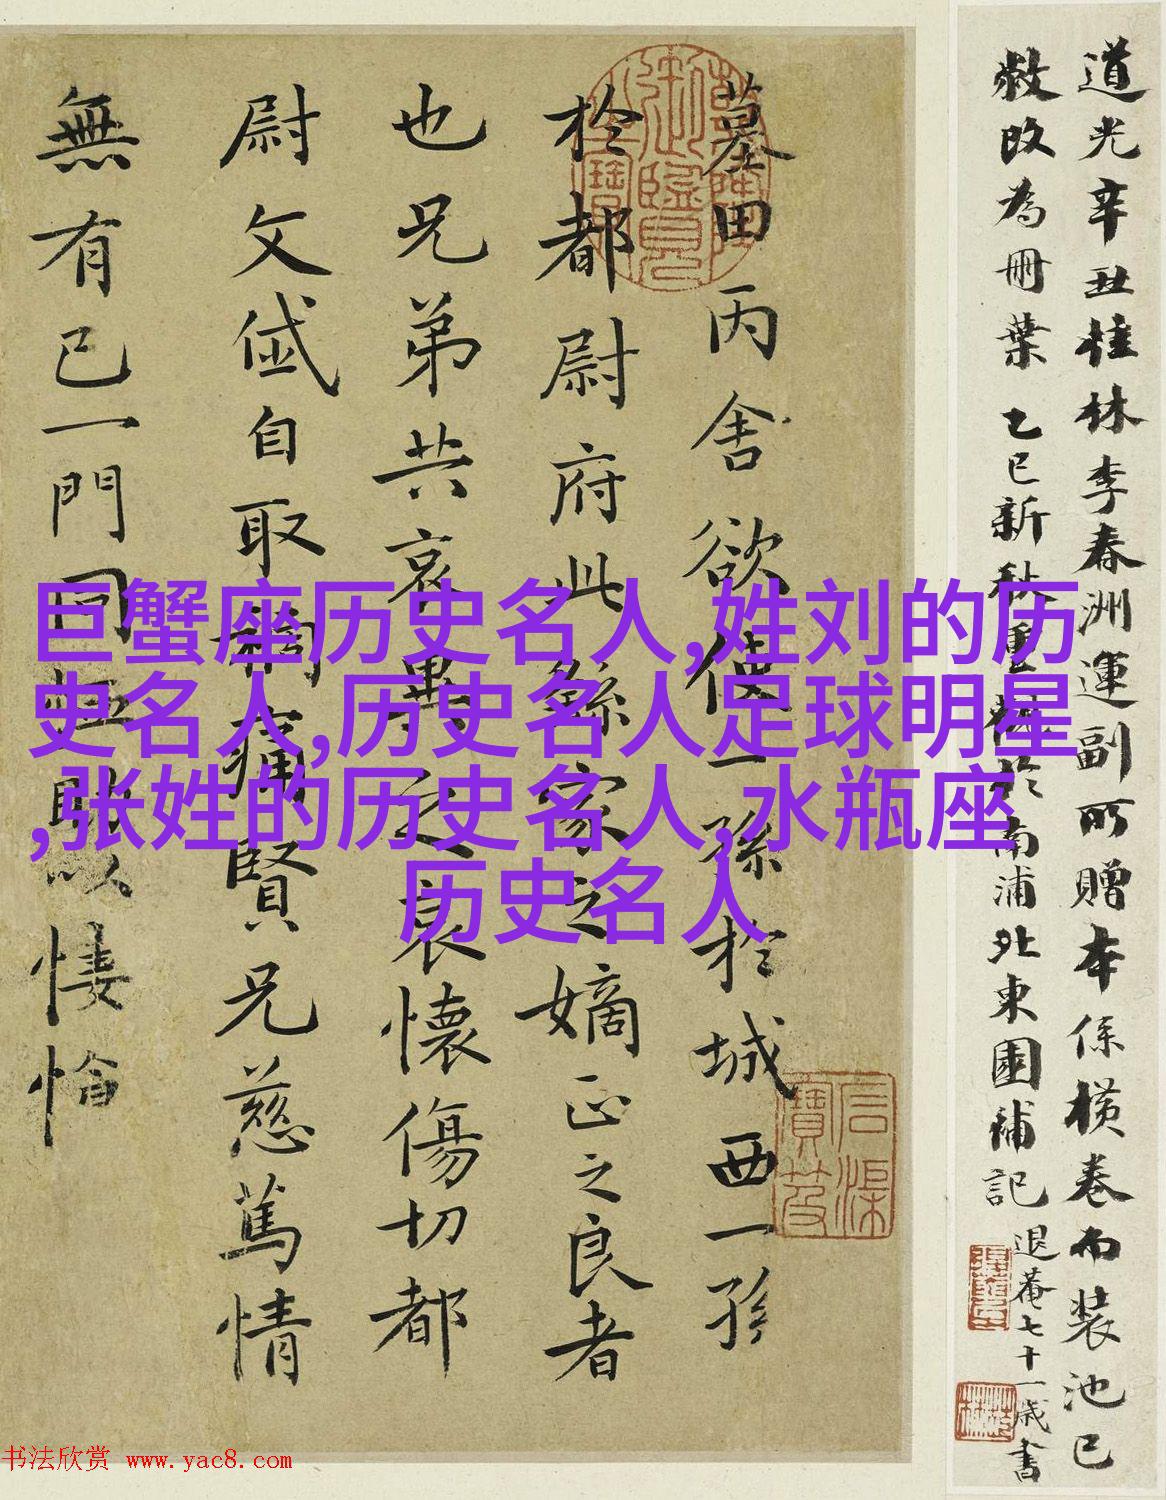 道光辛丑桂林李春洲運副所贈本係橫卷而裝池已
敝改為冊葉 乙巳新秋重裝於南浦北東園補記 退菴七十一歲書
墓田丙舍欲使一孫於城西一孫
於都尉府此繇家之嫡正之良者
也兄弟共哀異之哀懷傷切都
尉文岱自取禍痛賢兄慈篤情
無有已一門同恤助以悽愴
石渠寶笈
巨蟹座历史名人,姓刘的历
史名人,历史名人足球明星
,张姓的历史名人,水瓶座
历史名人
书法欣赏 www.yac8.com